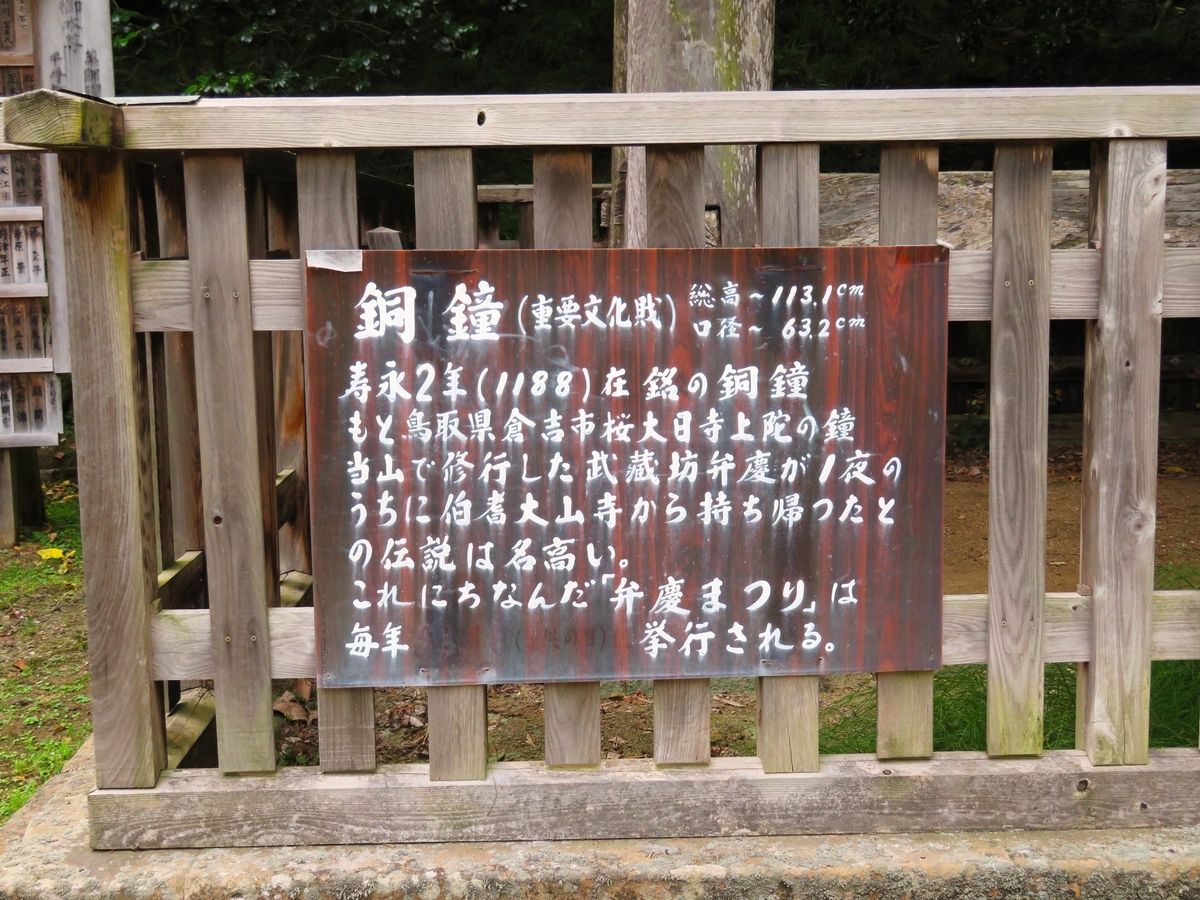 銅鐘(重要文化財) 総高~113.1cm
口径~63.2cm
寿永2年(1188)在銘の銅鐘
もと鳥取県倉吉市桜大日寺上陀の鐘
当山で修行した武蔵坊弁慶が1夜の
うちに伯耆大山寺から持ち帰つたと
の伝説は名高い。
これにちなんだ「弁慶まつり」は
毎年 挙行される。